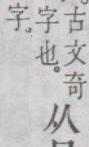 古文奇
字也。从
字。